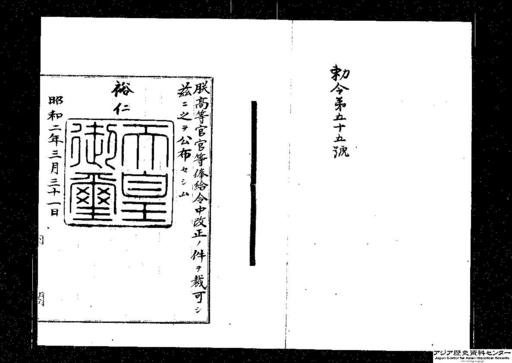 勅令第五十五號
朕高等官官等俸給令中改正ノ件ヲ裁可シ
茲ニ之ヲ公布セシム
裕仁
天皇
御璽
昭和二年三月三十一日
アジア歴史資料センター
Japan Center for Asian Historical Records